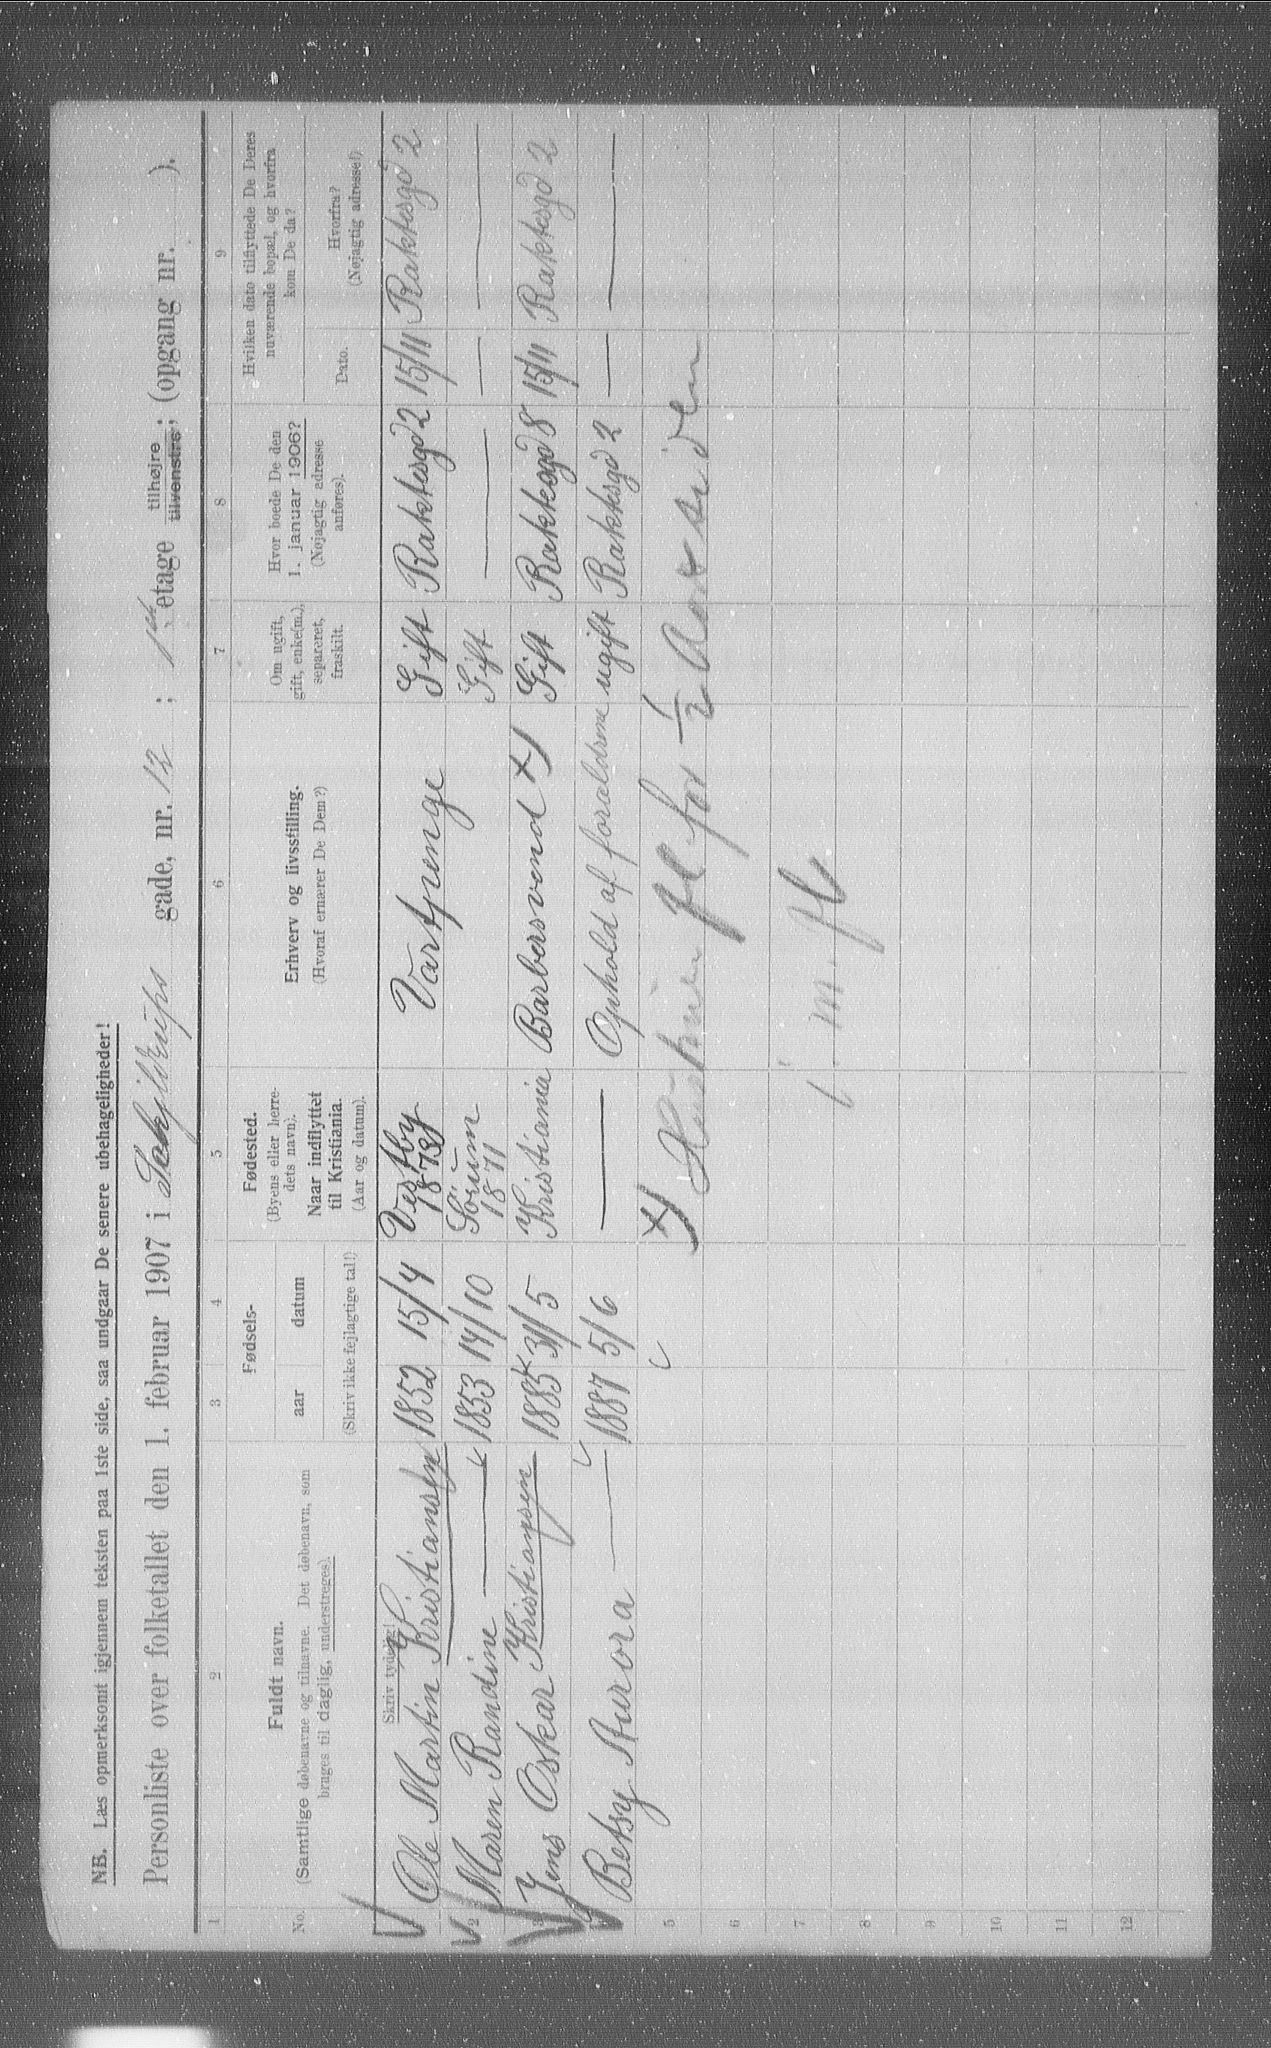 NB. Læs opmerksomt igjennem teksten paa 1ste side, saa undgaar De senere ubehageligheder!
Personliste over folketallet den 1. februar 1907 i Sokjldrups gade, nr. 12 ; 1ste etage tilhøjre tilvenstre; (opgang nr. ).
1 2 3 4 5 6 7 8 9
No. Fuldt navn. (Samtlige døbenavne og tilnavne. Det døbenavn, som bruges til daglig, understreges).
Fødsels- aar datum (Skriv ikke fejlagtige tal!)
Fødested. (Byens eller herredets navn). Naar indflyttet til Kristiania. (Aar og datum).
Erhverv og livsstilling. (Hvoraf ernærer De Dem?)
Om ugift, gift, enke(m.), separeret, fraskilt.
Hvor boede De den 1. januar 1906? (Nøjagtig adresse anføres).
Hvilken dato tilflyttede De Deres nuværende bopæl, og hvorfra kom De da?
Dato. Hvorfra? (Nøjagtig adresse!)
Skriv tydelig!
Ole Martin Kristiansen 1852 15/4 Vestby 1873 Vartpenge Gift Rakkesgd 2 15/11 Rakkesgd 2
2 Maren Randine — 1853 14/10 Sörum 1871 Gift — — —
3 Jens Oskar Kristiansen 1885 31/5 Kristiania Barbersvend x) Gift Rakkegd 8 15/11 Rakkesgd 2
Betsy Aurora — 1887 5/6 — Ophold af forældrene ugift Rakkesgd 2 — —
5 x) for 1/2 Aar siden
6
7
8
9
10
11
12